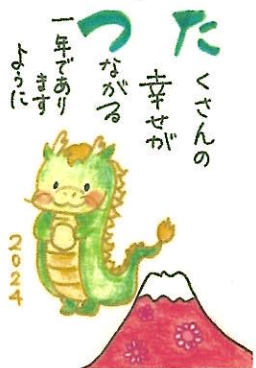 たくさんの
幸せが
つながる
一年であり
ます
ように
2024